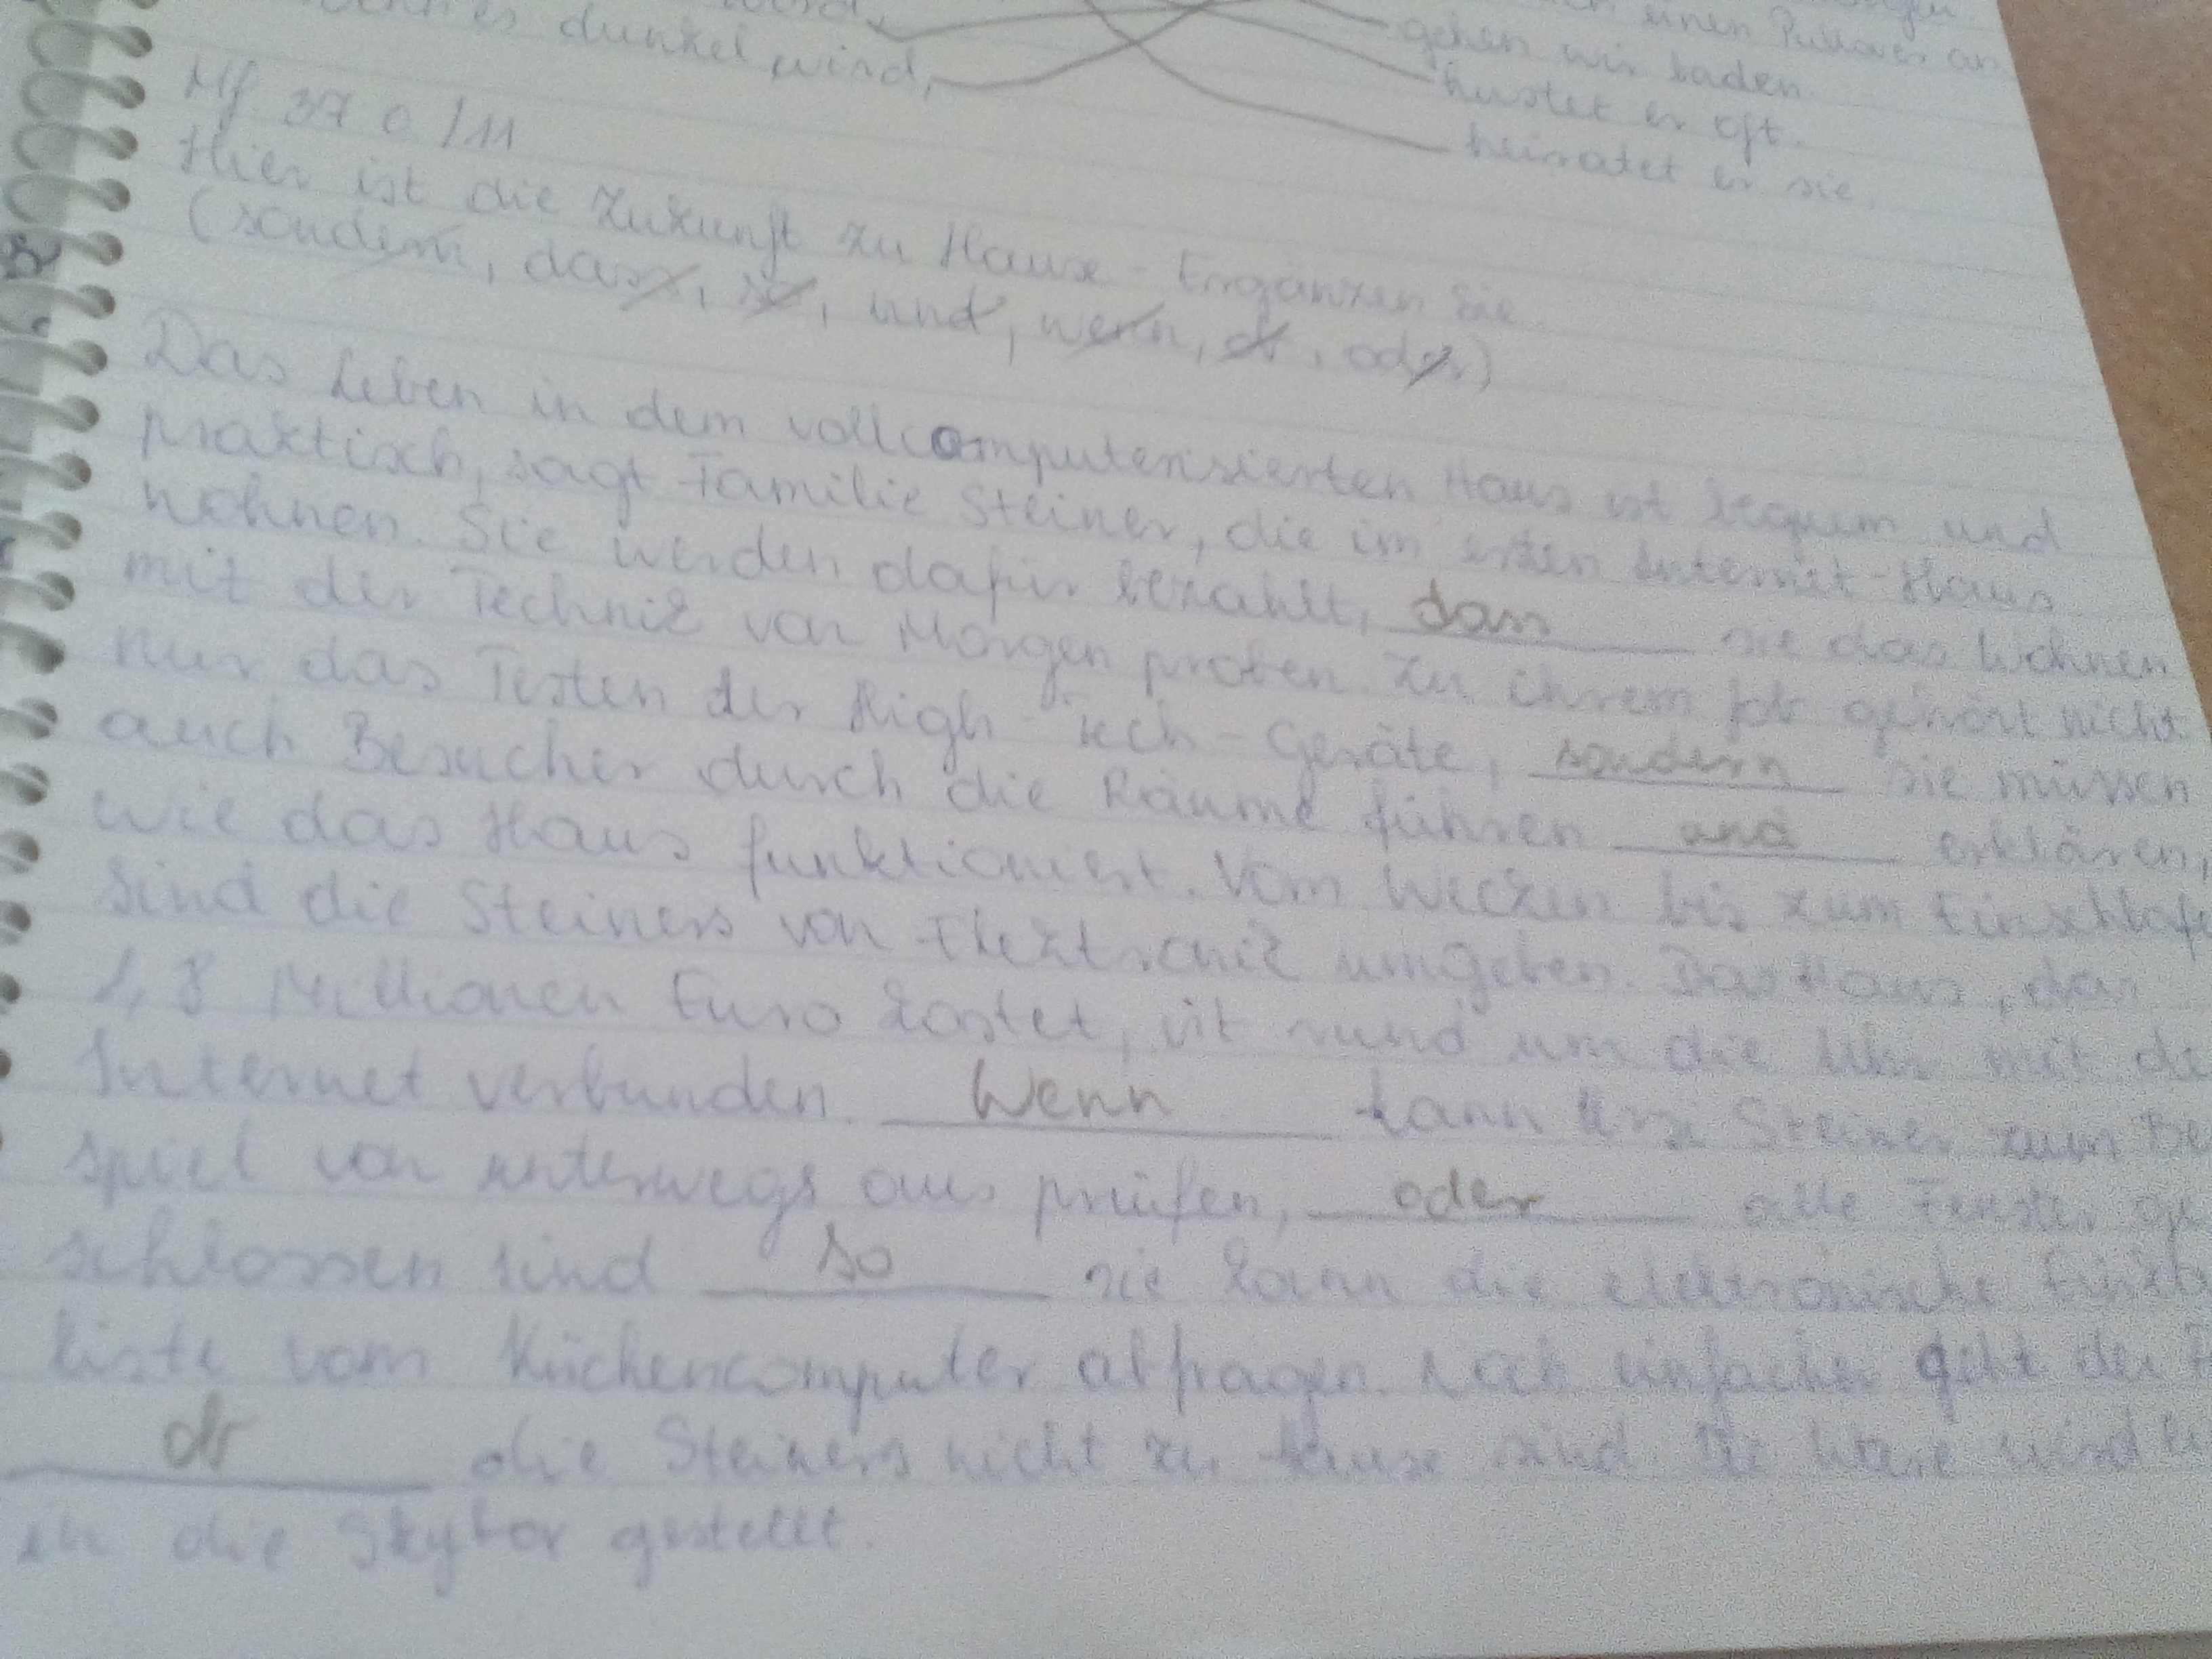 es dunkel wird,
einen Pullover an.
gehen wir baden.
hustet er oft.
heiratet er sie.
Mf. 37 o. /11
Hier ist die Zukunft zu Hause - Ergänzen Sie.
(sondern, dass, so, und, wenn, ob, oder)
Das Leben in dem vollcomputerisierten Haus ist bequem und
praktisch, sagt Familie Steiner, die im ersten Internet-Haus
wohnen. Sie werden dafür bezahlt, dass sie das Wohnen
mit der Technik von Morgen proben. Zu ihrem Job gehört nicht
nur das Testen der High-Tech-Geräte, sondern sie müssen
auch Besucher durch die Räume führen und erklären,
wie das Haus funktioniert. Vom Wecken bis zum Einschlafe
sind die Steiners von Elektronik umgeben. Das Haus, das
1,8 Millionen Euro kostet, ist rund um die Uhr mit de
Internet verbunden. Wenn kann Steiner zum Bei
spiel von unterwegs aus prüfen, oder alle Fenster ge
schlossen sind so sie kann die elektronische
liste vom Küchencomputer abfragen. Noch einfacher geht der
ob die Steiners nicht zu Hause sind. Die Ware wird
in die Skybox gestellt.